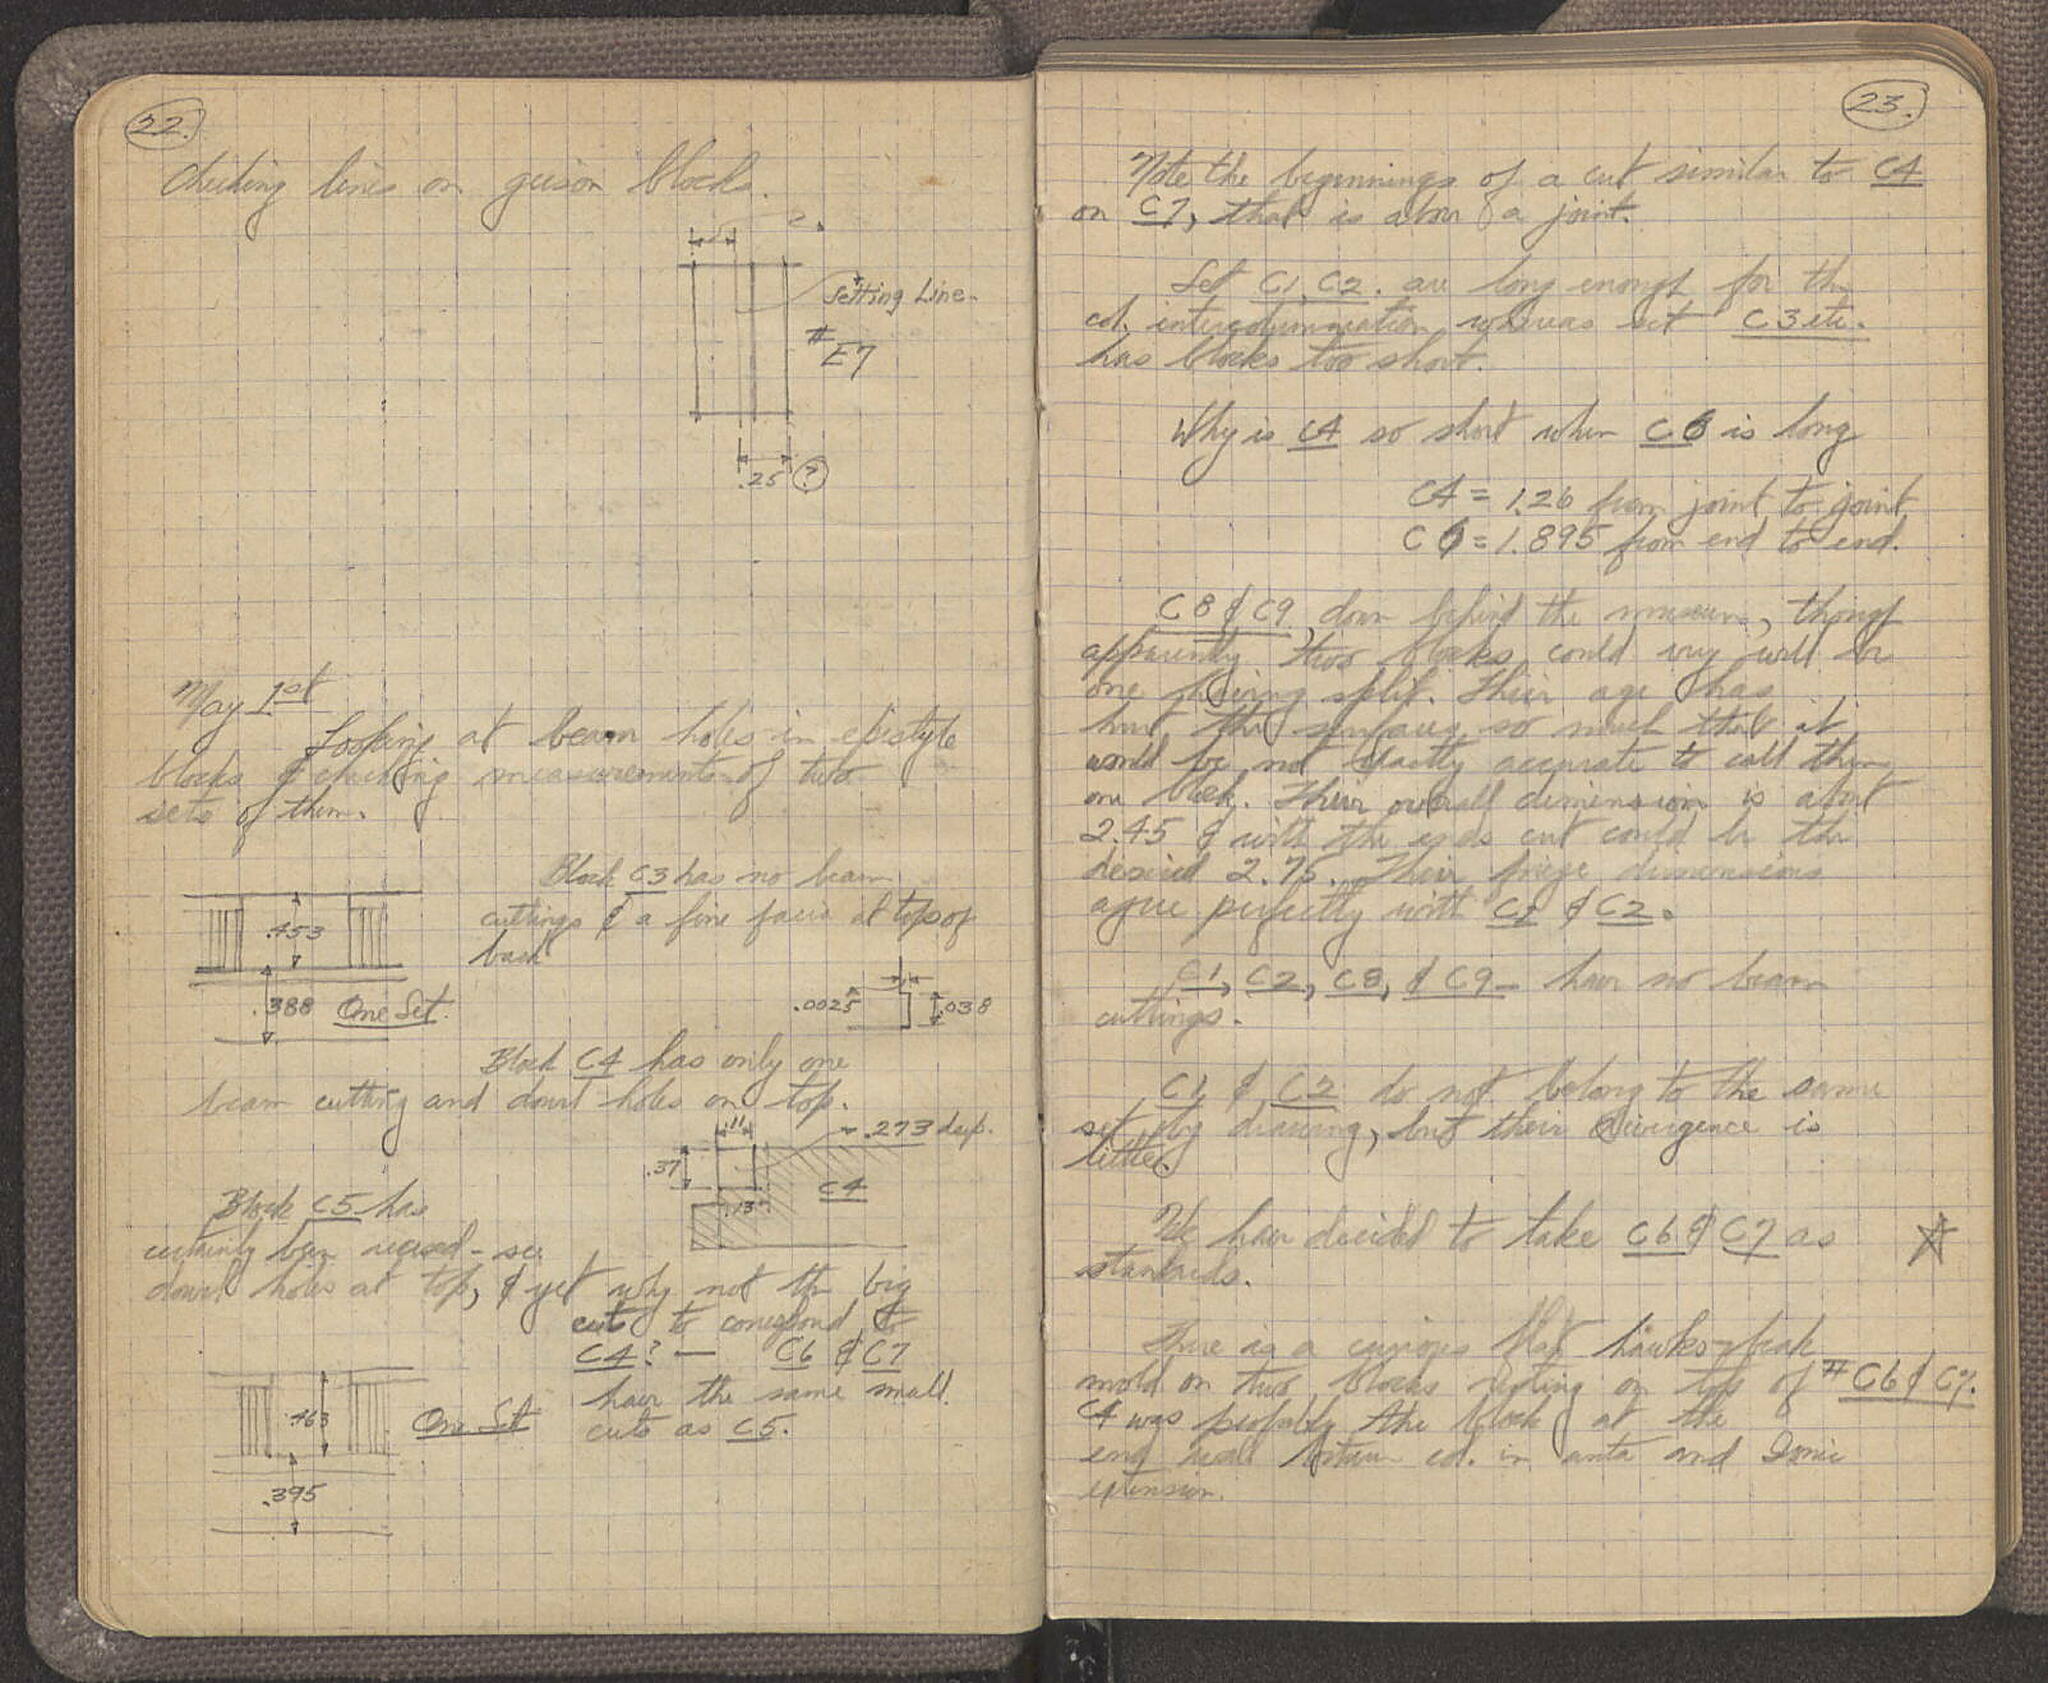 22.
Checking lines on geison blocks.
Setting Line.
# E7
.25 ?
May 1st
Looking at beam holes in epistyle
blocks & checking measurements of two
sets of them.
Block C3 has no beam
cuttings & a fine facia at top of
back
.453
.388 One Set.
.0025 .038
Block C4 has only one
beam cutting and dowel holes on top.
.11 .273 deep.
.37
C4
.13
Block C5 has
certainly been reused - see
dowel holes at top, & yet why not the big
cut to correspond to
C4? — C6 & C7
have the same small
cuts as C5.
.463 One Set
.395
23.
Note the beginnings of a cut similar to C4
on C7, that is above a joint.
Set C1, C2. are long enough for the
col. intercolumniation whereas set C3 etc.
has blocks too short.
Why is C4 so short when C6 is long
C4 = 1.26 from joint to joint.
C6 = 1.895 from end to end.
C8 & C9, down behind the museum, though
apparently two blocks could very well be
one having split. Their age has
hurt the surfaces so much that it
would be not exactly accurate to call them
one block. Their overall dimension is about
2.45 & with the ends cut could be the
desired 2.75. Their frieze dimensions
agree perfectly with C1 & C2.
C1, C2, C8, & C9 - have no beam
cuttings.
C1 & C2 do not belong to the same
set by drawing, but their divergence is
little.
We have decided to take C6 & C7 as
standards.
There is a curious flat hawks-beak
mold on two blocks resting on top of # C6 & C7.
C4 was probably the block at the
end wall between col. in anta and Ionic
extension.